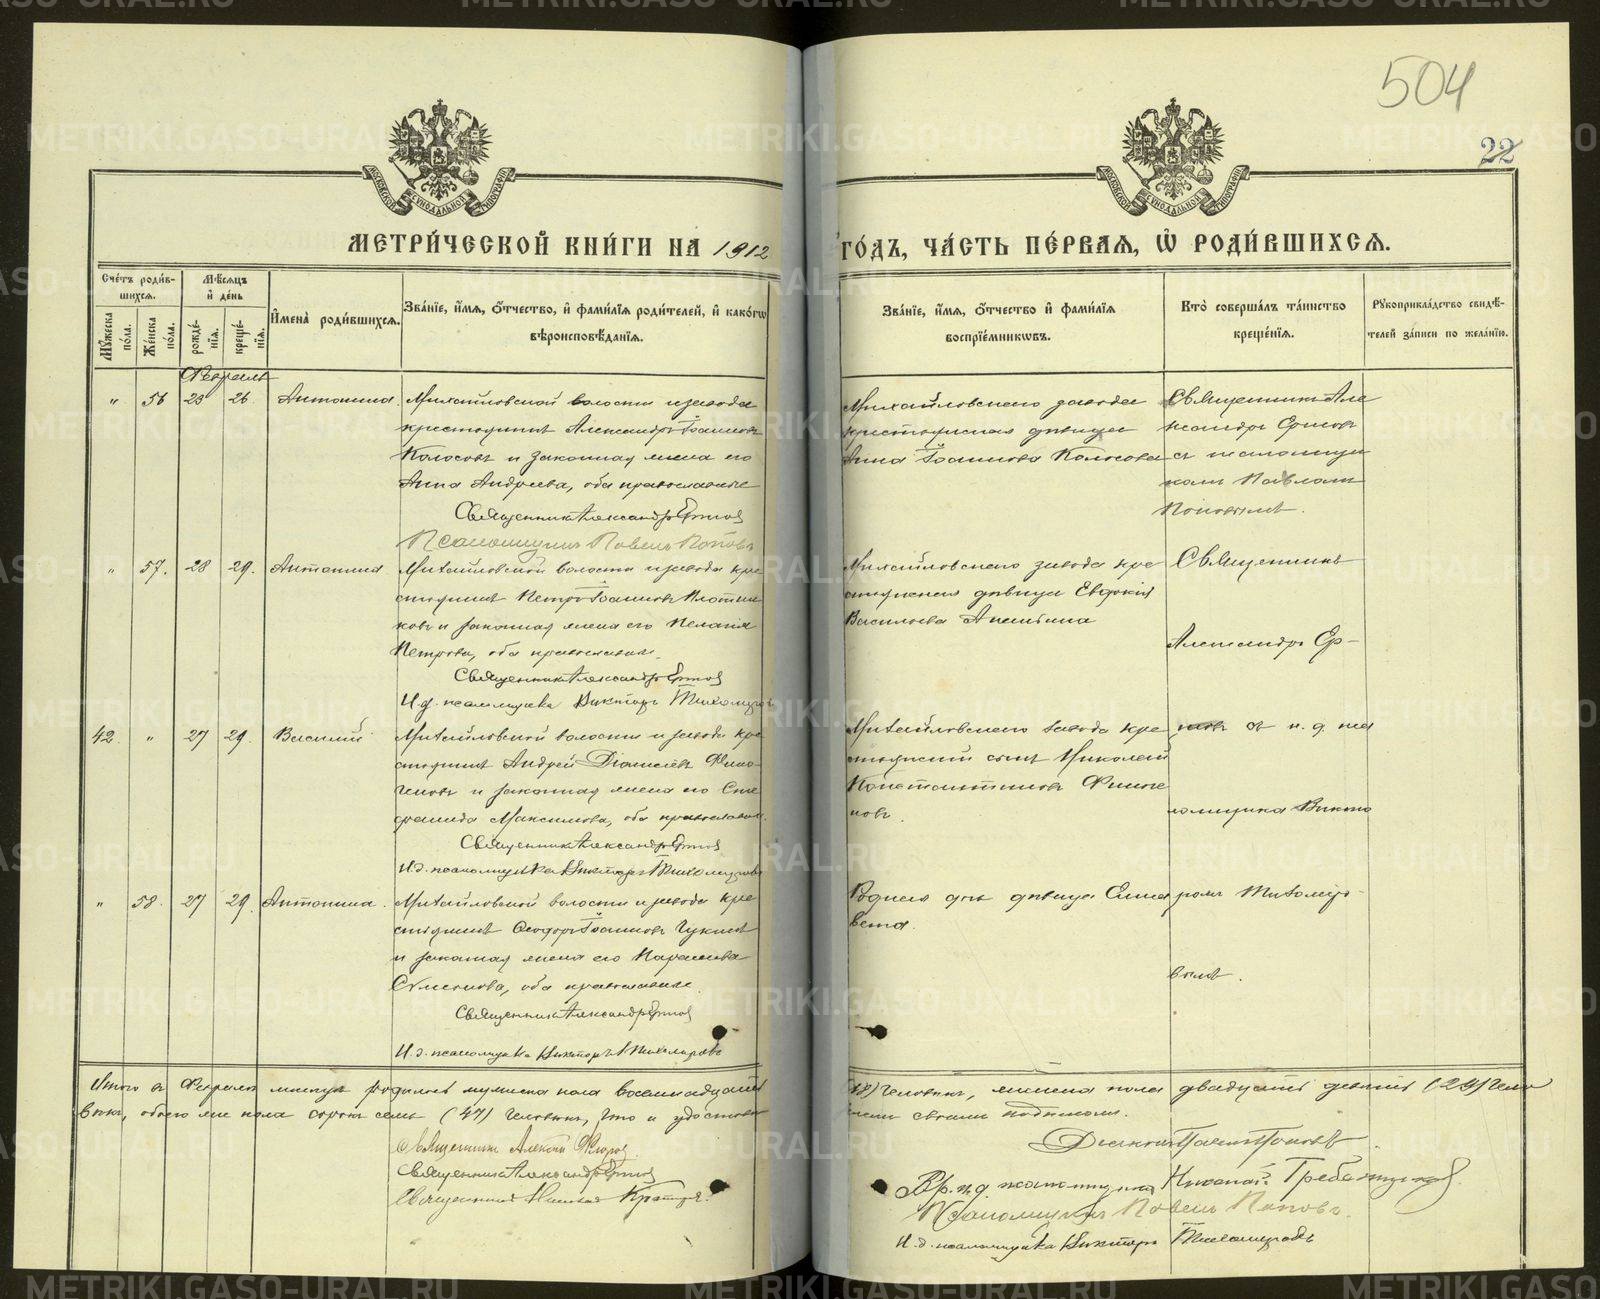 504
22
МЕТРИ́ЧЕСКОЙ КНИ́ГИ НА 1912
ГО́ДЪ, ЧА́СТЬ ПЕ́РВАѦ, Ѡ҆ РОДИ́ВШИХСѦ.
Сче́тъ роди́в-
шихсѧ.
Мꙋ́жеска по́ла.
Же́нска по́ла.
Мѣ́сѧцъ
и҆ де́нь
рожде́-
нїѧ.
креще́-
нїѧ.
И҆мена̀ роди́вшихсѧ.
Зва́нїе, и҆́мѧ, ѻ҆́тчество, и҆ фами́лїѧ роди́телей, и҆ како́гѡ
вѣроисповѣ́данїѧ.
Зва́нїе, и҆́мѧ, ѻ҆́тчество и҆ фами́лїѧ
воспрїе́мникѡвъ.
Кто̀ соверша́лъ та́инство
креще́нїѧ.
Рꙋкоприкла́дство свидѣ́-
телей за́писи по жела́нїю.
Февраль
" 56 25 26. Антонина.
Михайловской волости и завода
крестьянинъ Александръ Іоанновъ
Колосовъ и законная жена его
Анна Андреева, оба православные
Священникъ Александръ
Псаломщикъ Павелъ Поповъ
Михайловскаго завода
крестьянская дѣвица
Анна Іоаннова Колосова
Священникъ Але
ксандръ
съ псаломщи
комъ Павломъ
Поповымъ.
" 57. 28 29. Антонина
Михайловской волости и завода кре
стьянинъ Петръ Іоанновъ Плотни-
ковъ и законная жена его Пелагія
Петрова, оба православные.
Священникъ Александръ
И. д. псаломщика Викторъ Тихомировъ
Михайловскаго завода кре
стьянская дѣвица Евдокія
Васильева
Священникъ
Александръ
42. " 27 29. Василій
Михайловской волости и завода кре
стьянинъ Андрей Діонисіевъ
и законная жена его Сте
фанида Максимова, оба православные.
Священникъ Александръ
И. д. псаломщика Викторъ Тихомировъ
Михайловскаго завода кре
стьянскій сынъ Николай
Константиновъ
съ и. д. пса
ломщика Викто
" 58. 27 29. Антонина.
Михайловской волости и завода кре
стьянинъ Ѳеодоръ Іоанновъ
и законная жена его Параскева
Симеонова, оба православные.
Священникъ Александръ
И. д. псаломщика Викторъ Тихомировъ
дѣвица Елиза
вета.
ромъ Тихомиро-
вымъ.
Итого въ Февралѣ мѣсяцѣ родилось мужеска пола восемнадцать
(18) человѣкъ, женска пола двадцать девять (29) чело
вѣкъ, обоего же пола сорокъ семь (47) человѣкъ, что и удостовѣ
своими подписями.
Священникъ Алексій
Священникъ Александръ
Священникъ
Діаконъ Поповъ
Вр. и. д. псаломщика Николай Гребенщиковъ.
Псаломщикъ Павелъ Поповъ.
И. д. псаломщика Викторъ Тихомировъ
METRIKI.GASO-URAL.RU